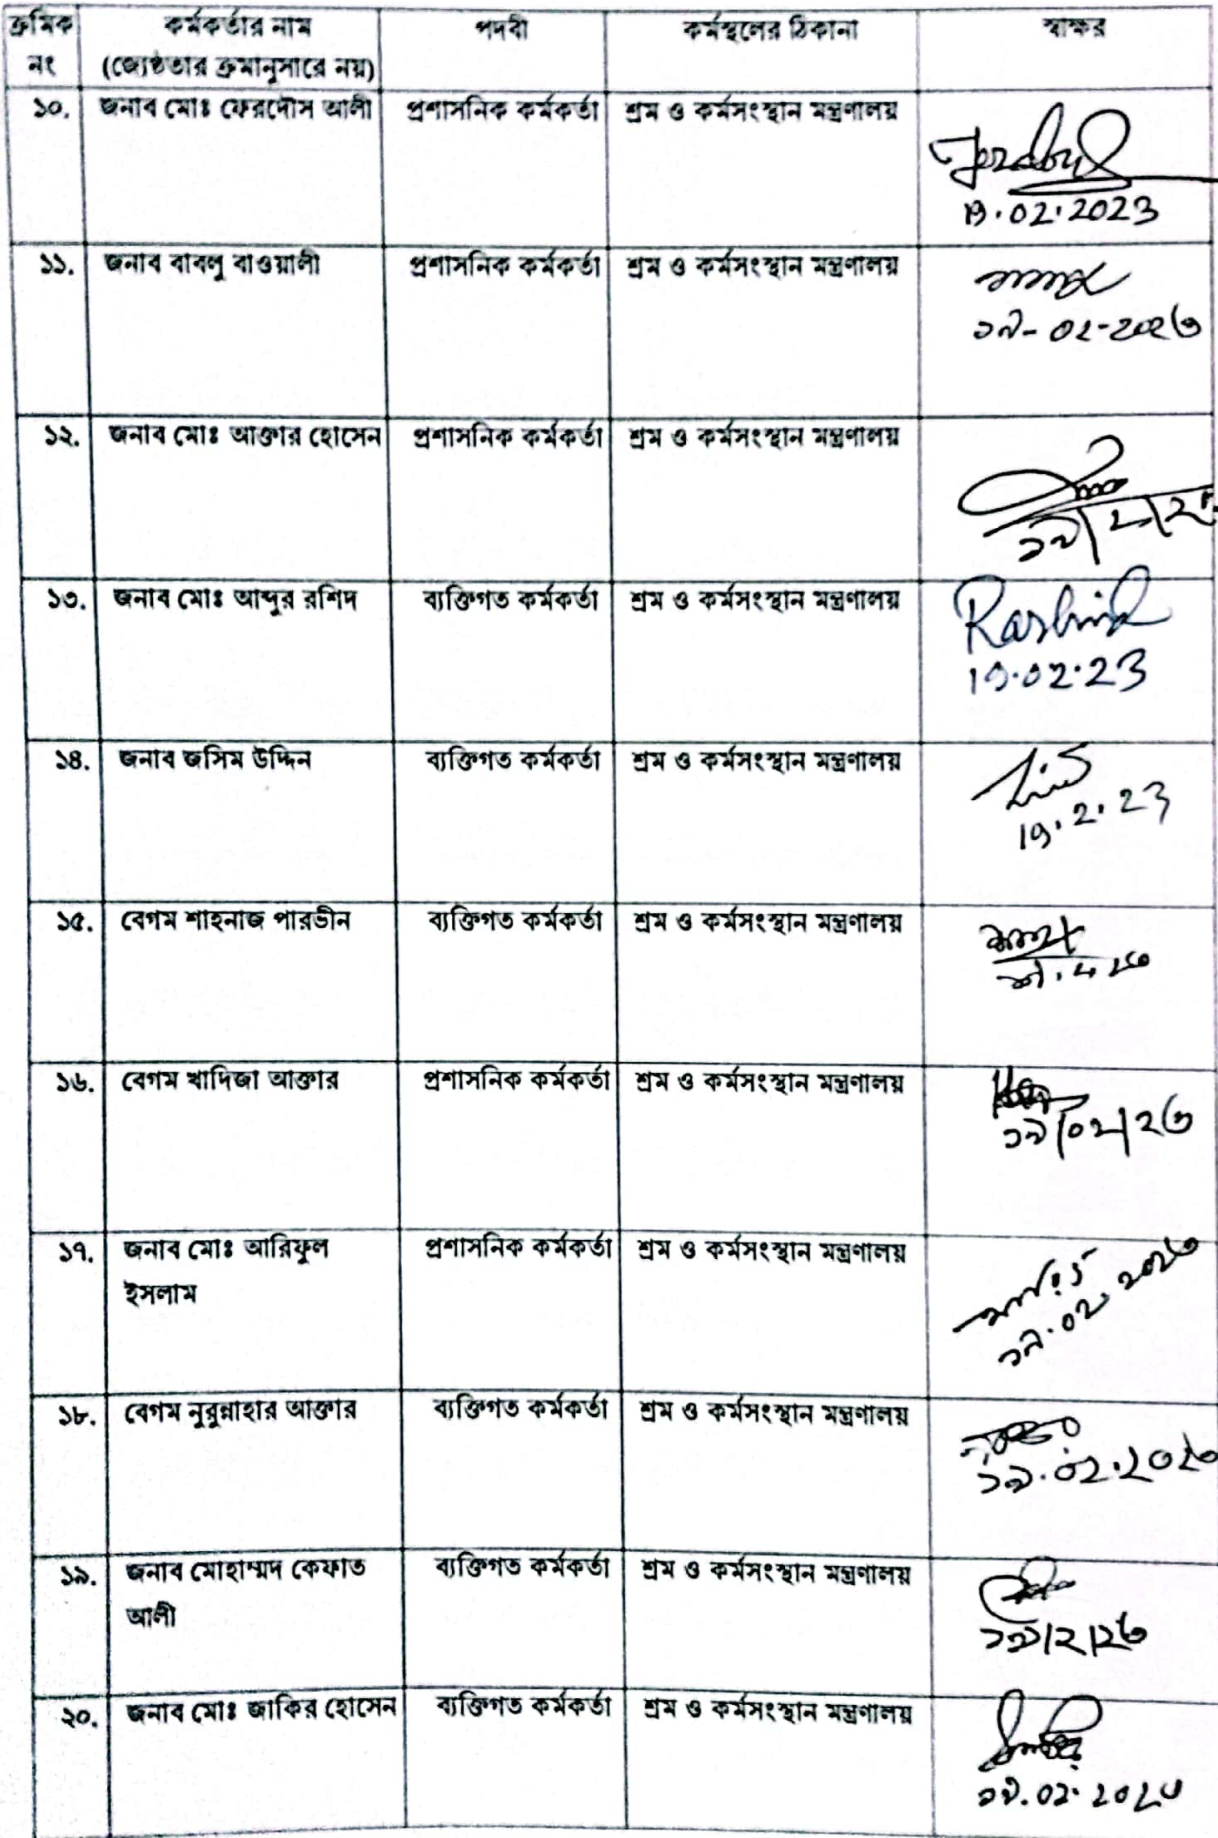 ক্রমিক নং | কর্মকর্তার নাম (জ্যেষ্ঠতার ক্রমানুসারে নয়) | পদবী | কর্মস্থলের ঠিকানা | স্বাক্ষর
১০. জনাব মোঃ ফেরদৌস আলী প্রশাসনিক কর্মকর্তা শ্রম ও কর্মসংস্থান মন্ত্রণালয়
19.02.2023
১১. জনাব বাবলু বাওয়ালী প্রশাসনিক কর্মকর্তা শ্রম ও কর্মসংস্থান মন্ত্রণালয়
১৯-০২-২০২৩
১২. জনাব মোঃ আক্তার হোসেন প্রশাসনিক কর্মকর্তা শ্রম ও কর্মসংস্থান মন্ত্রণালয়
১৩. জনাব মোঃ আব্দুর রশিদ ব্যক্তিগত কর্মকর্তা শ্রম ও কর্মসংস্থান মন্ত্রণালয় Rashid
19.02.23
১৪. জনাব জসিম উদ্দিন ব্যক্তিগত কর্মকর্তা শ্রম ও কর্মসংস্থান মন্ত্রণালয়
19.2.23
১৫. বেগম শাহনাজ পারভীন ব্যক্তিগত কর্মকর্তা শ্রম ও কর্মসংস্থান মন্ত্রণালয়
১৬. বেগম খাদিজা আক্তার প্রশাসনিক কর্মকর্তা শ্রম ও কর্মসংস্থান মন্ত্রণালয়
১৯/০২/২৩
১৭. জনাব মোঃ আরিফুল প্রশাসনিক কর্মকর্তা শ্রম ও কর্মসংস্থান মন্ত্রণালয়
ইসলাম
১৯.০২.২০২৩
১৮. বেগম নুরুন্নাহার আক্তার ব্যক্তিগত কর্মকর্তা শ্রম ও কর্মসংস্থান মন্ত্রণালয়
১৯.০২.২০২৩
১৯. জনাব মোহাম্মদ কেফাত ব্যক্তিগত কর্মকর্তা শ্রম ও কর্মসংস্থান মন্ত্রণালয়
আলী
১৯/২/২৩
২০. জনাব মোঃ জাকির হোসেন ব্যক্তিগত কর্মকর্তা শ্রম ও কর্মসংস্থান মন্ত্রণালয়
১৯.০২.২০২৩